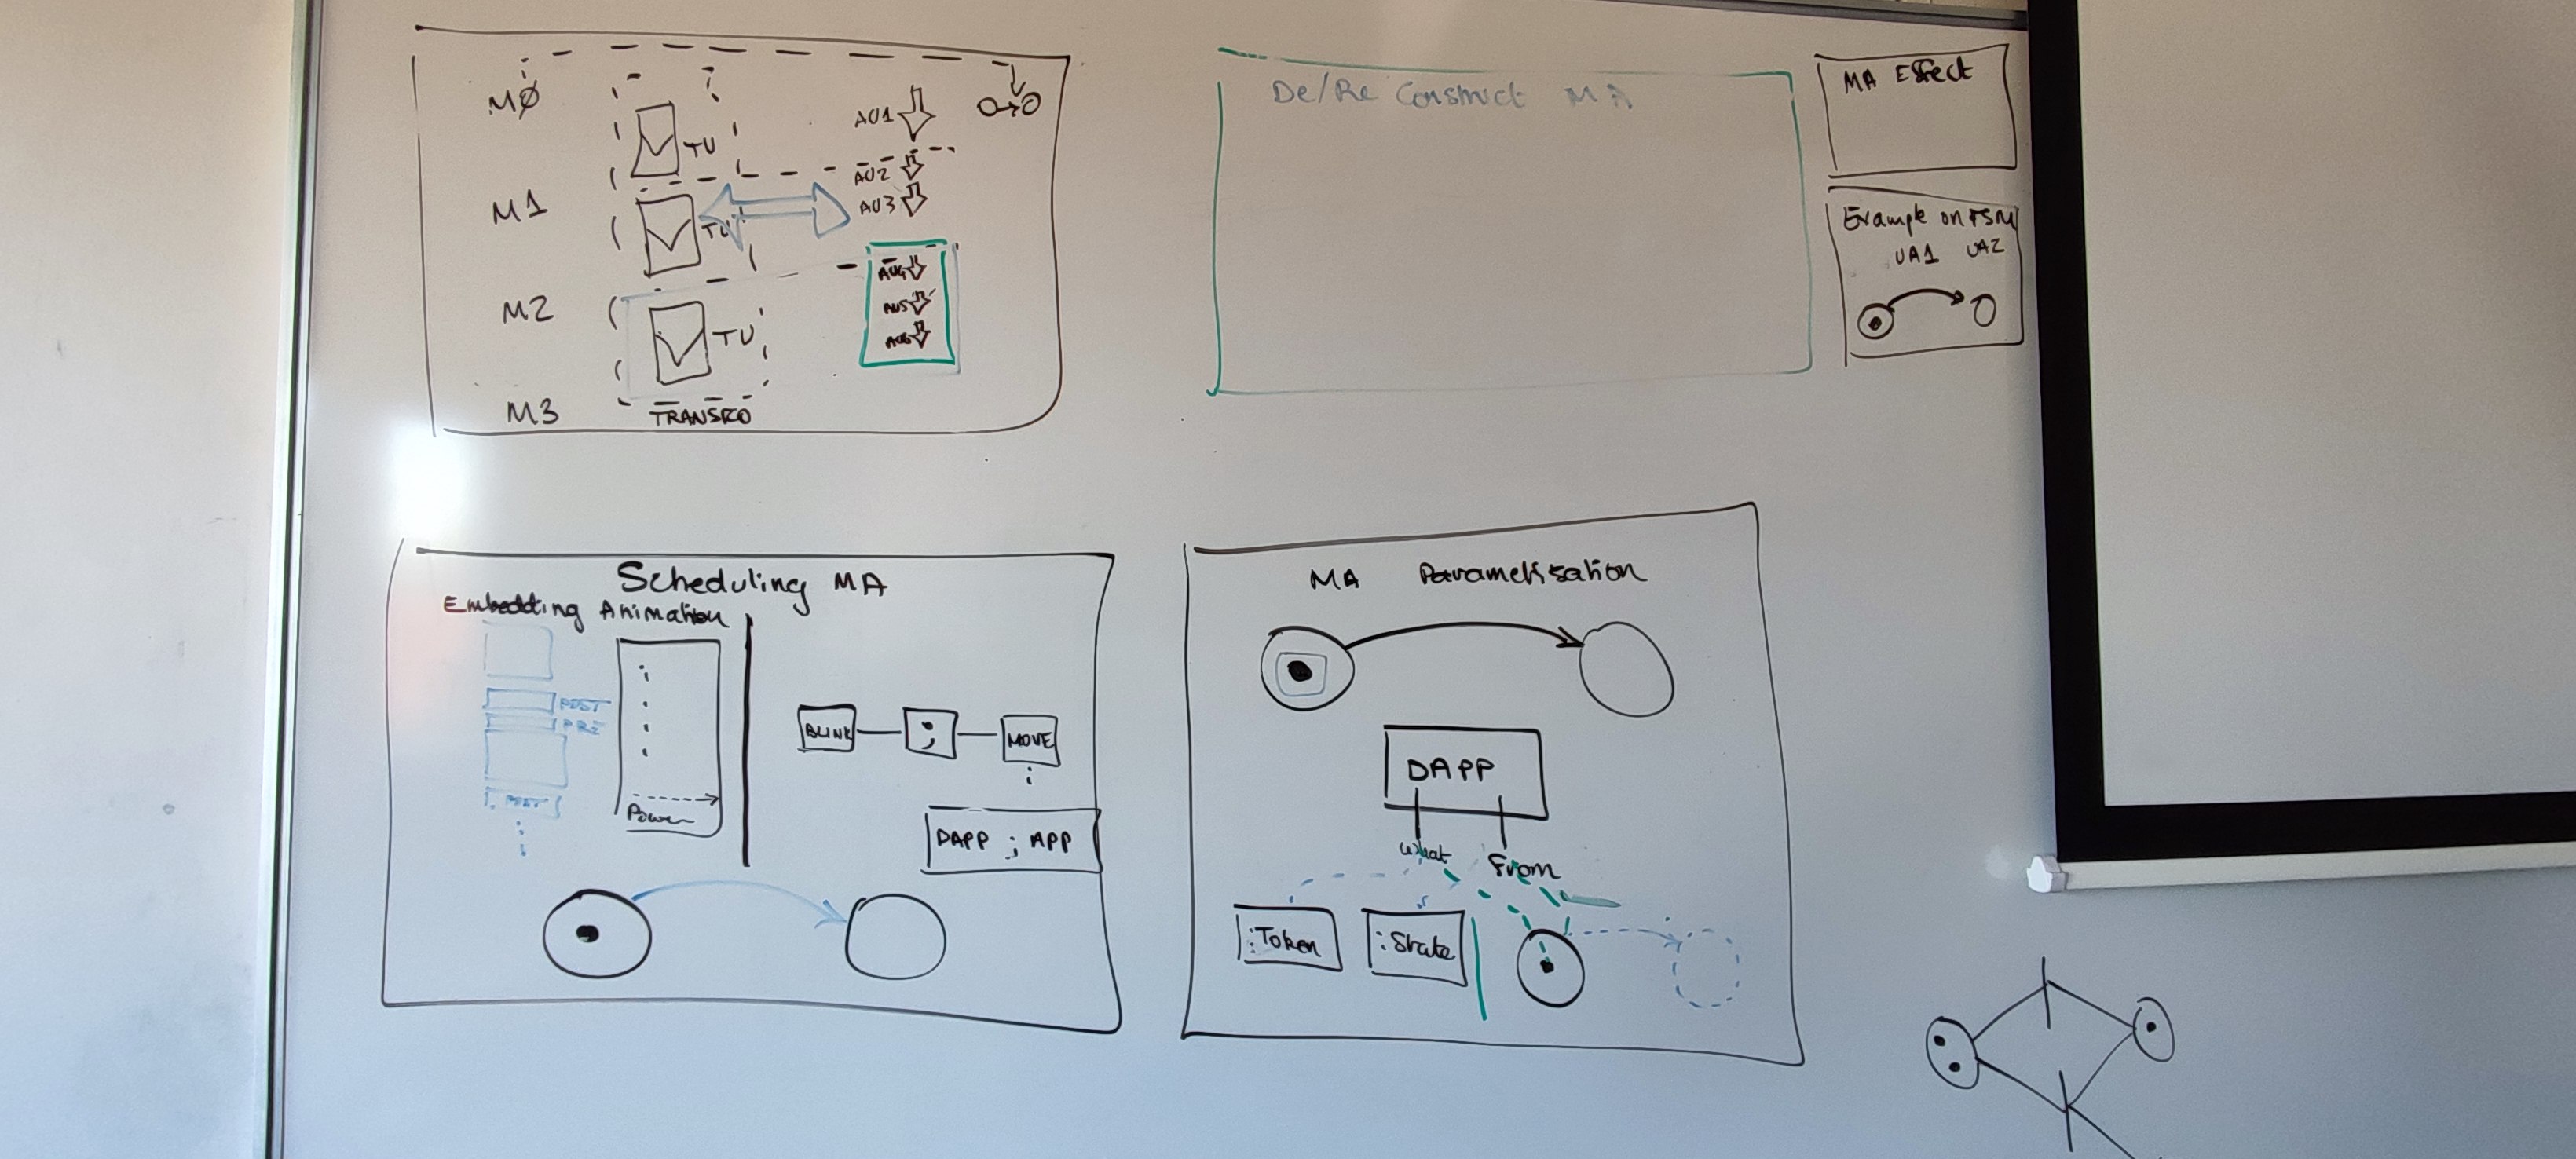 MØ
TU
AU1
AU2
M1
AU3
TU
AU4
M2
AU5
TU
AU6
M3
TRANSFO
De/Re Construct MA
MA Effect
Example on FSM
UA1 UA2
Scheduling MA
Embedding Animation
POST
PRE
POST
Power
BLINK
;
MOVE
DAPP ; APP
MA Parametisation
DAPP
what
From
:Token
:State